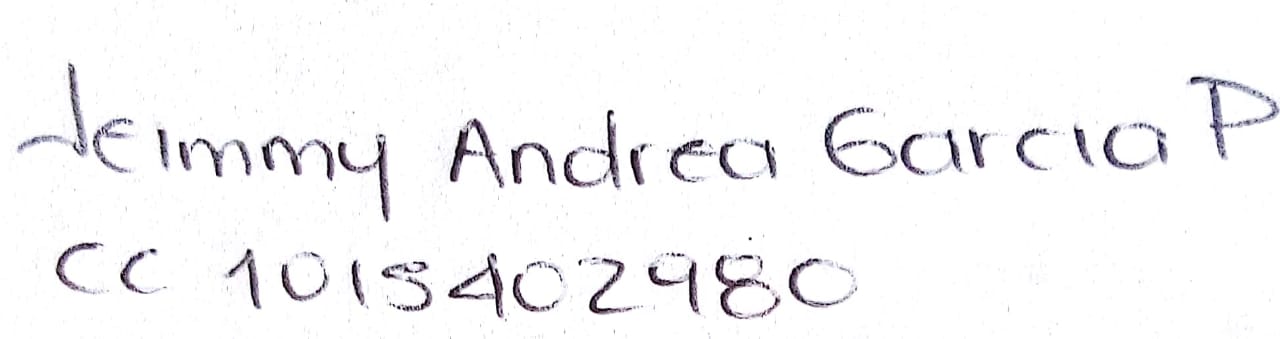 Jeimmy Andrea Garcia P
CC 1015402980